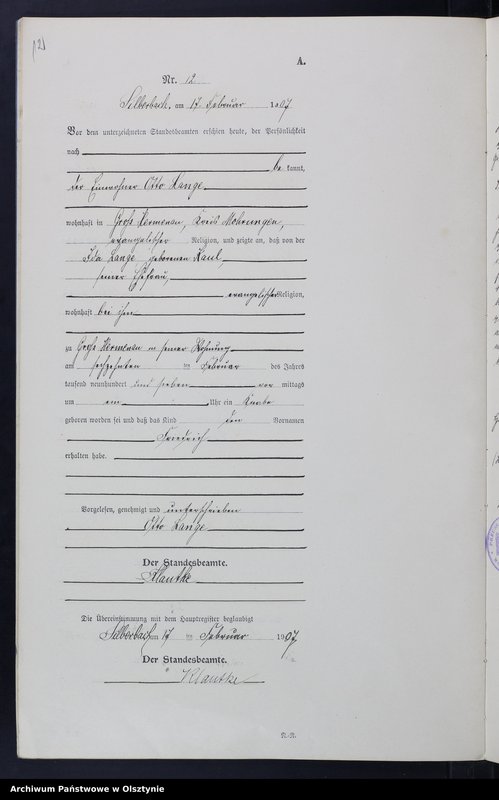 A.
Nr. 12
Silberbach, am 17 Februar 1907
Vor dem unterzeichneten Standesbeamten erschien heute, der Persönlichkeit
nach
be kannt,
der Einwohner Otto Lange
wohnhaft in Groß Hermenau, Kreis Mohrungen,
evangelischer Religion, und zeigte an, daß von der
Ida Lange geborenen Kaul,
seiner Ehefrau,
evangelischer Religion,
wohnhaft bei ihm
zu Groß Hermenau in seiner Wohnung
am sechzehnten ten Februar des Jahres
tausend neunhundert und sieben vor mittags
um ein Uhr ein Knabe
geboren worden sei und daß das Kind den Vornamen
Friedrich
erhalten habe.
Vorgelesen, genehmigt und unterschrieben
Otto Lange
Der Standesbeamte.
Klautke
Die Übereinstimmung mit dem Hauptregister beglaubigt
Silberbach am 17 ten Februar 1907
Der Standesbeamte.
Klautke
Archiwum Państwowe w Olsztynie